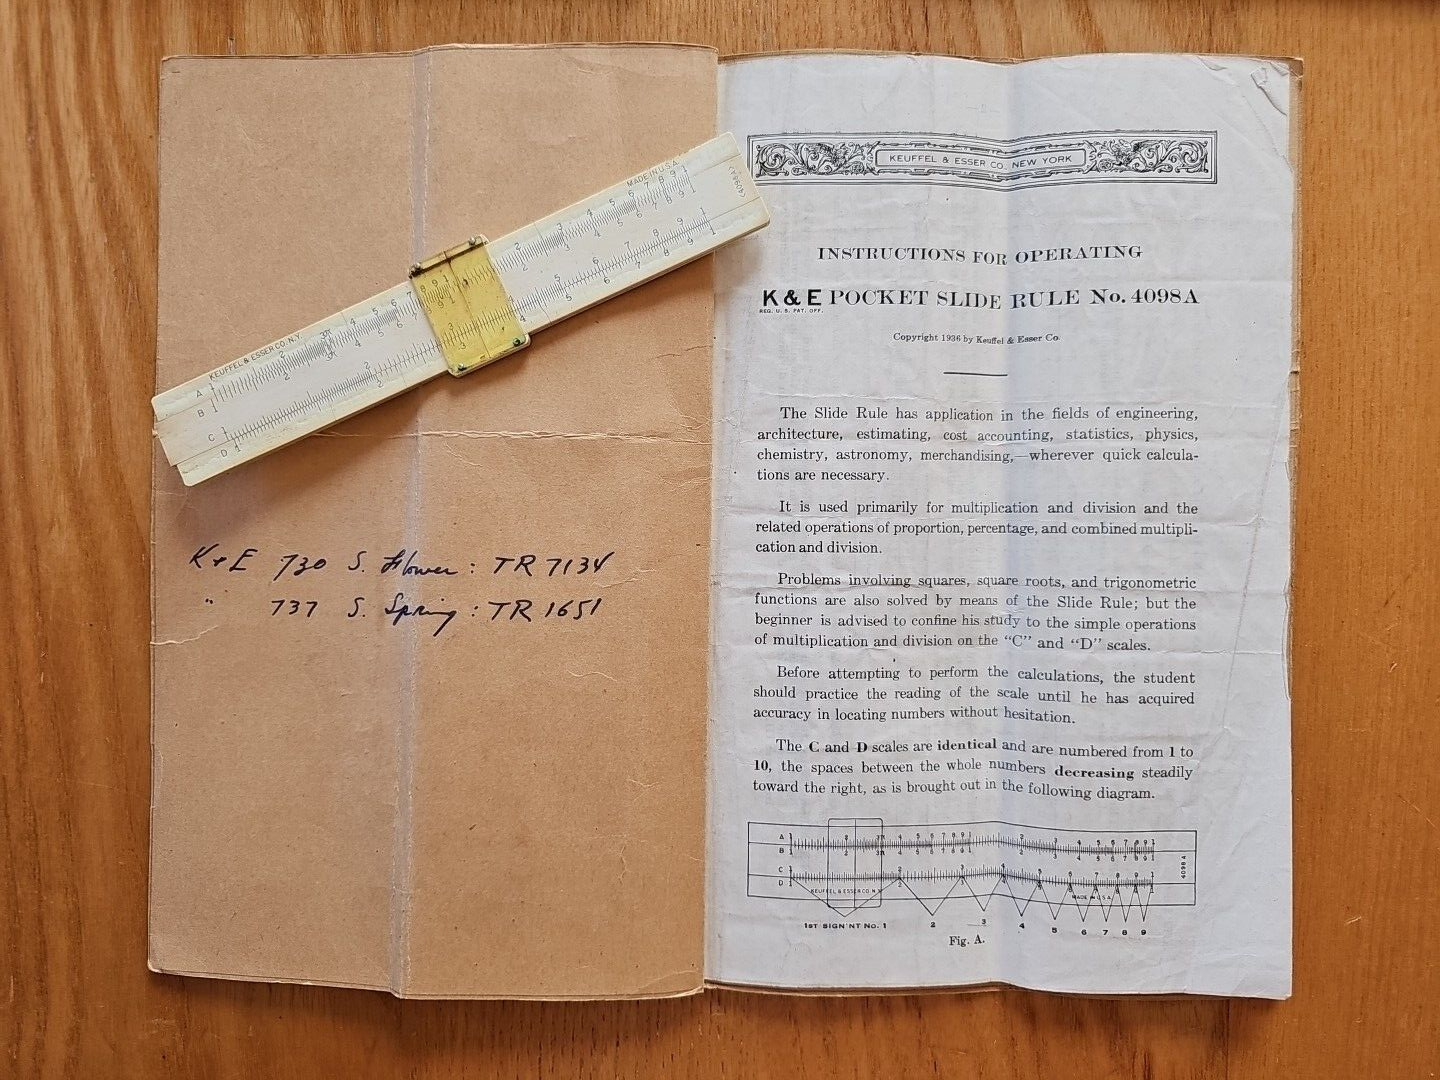 KEUFFEL & ESSER CO. N.Y.
MADE IN U.S.A.
4098A
A 1 2 3 π 4 5 6 7 8 9 1 2 3 4 5 6 7 8 9 1
B 1 2 3 π 4 5 6 7 8 9 1 2 3 4 5 6 7 8 9 1
C 1 2 3 4 5 6 7 8 9 1
D 1 2 3 4 5 6 7 8 9 1
K & E 730 S. Flower : TR 7134
" 737 S. Spring : TR 1651
KEUFFEL & ESSER CO. NEW YORK
INSTRUCTIONS FOR OPERATING
K & E POCKET SLIDE RULE No. 4098A
REG. U. S. PAT. OFF.
Copyright 1936 by Keuffel & Esser Co.
The Slide Rule has application in the fields of engineering,
architecture, estimating, cost accounting, statistics, physics,
chemistry, astronomy, merchandising,—wherever quick calcula-
tions are necessary.
It is used primarily for multiplication and division and the
related operations of proportion, percentage, and combined multipli-
cation and division.
Problems involving squares, square roots, and trigonometric
functions are also solved by means of the Slide Rule; but the
beginner is advised to confine his study to the simple operations
of multiplication and division on the “C” and “D” scales.
Before attempting to perform the calculations, the student
should practice the reading of the scale until he has acquired
accuracy in locating numbers without hesitation.
The C and D scales are identical and are numbered from 1 to
10, the spaces between the whole numbers decreasing steadily
toward the right, as is brought out in the following diagram.
A 1 2 3 π 4 5 6 7 8 9 1 2 3 4 5 6 7 8 9 1
B 1 2 3 π 4 5 6 7 8 9 1 2 3 4 5 6 7 8 9 1
C 1 2 3 4 5 6 7 8 9 1
D 1 2 3 4 5 6 7 8 9 1
KEUFFEL & ESSER CO. N.Y.
MADE IN U.S.A.
4098A
1ST SIGN'NT No. 1 2 3 4 5 6 7 8 9
Fig. A.